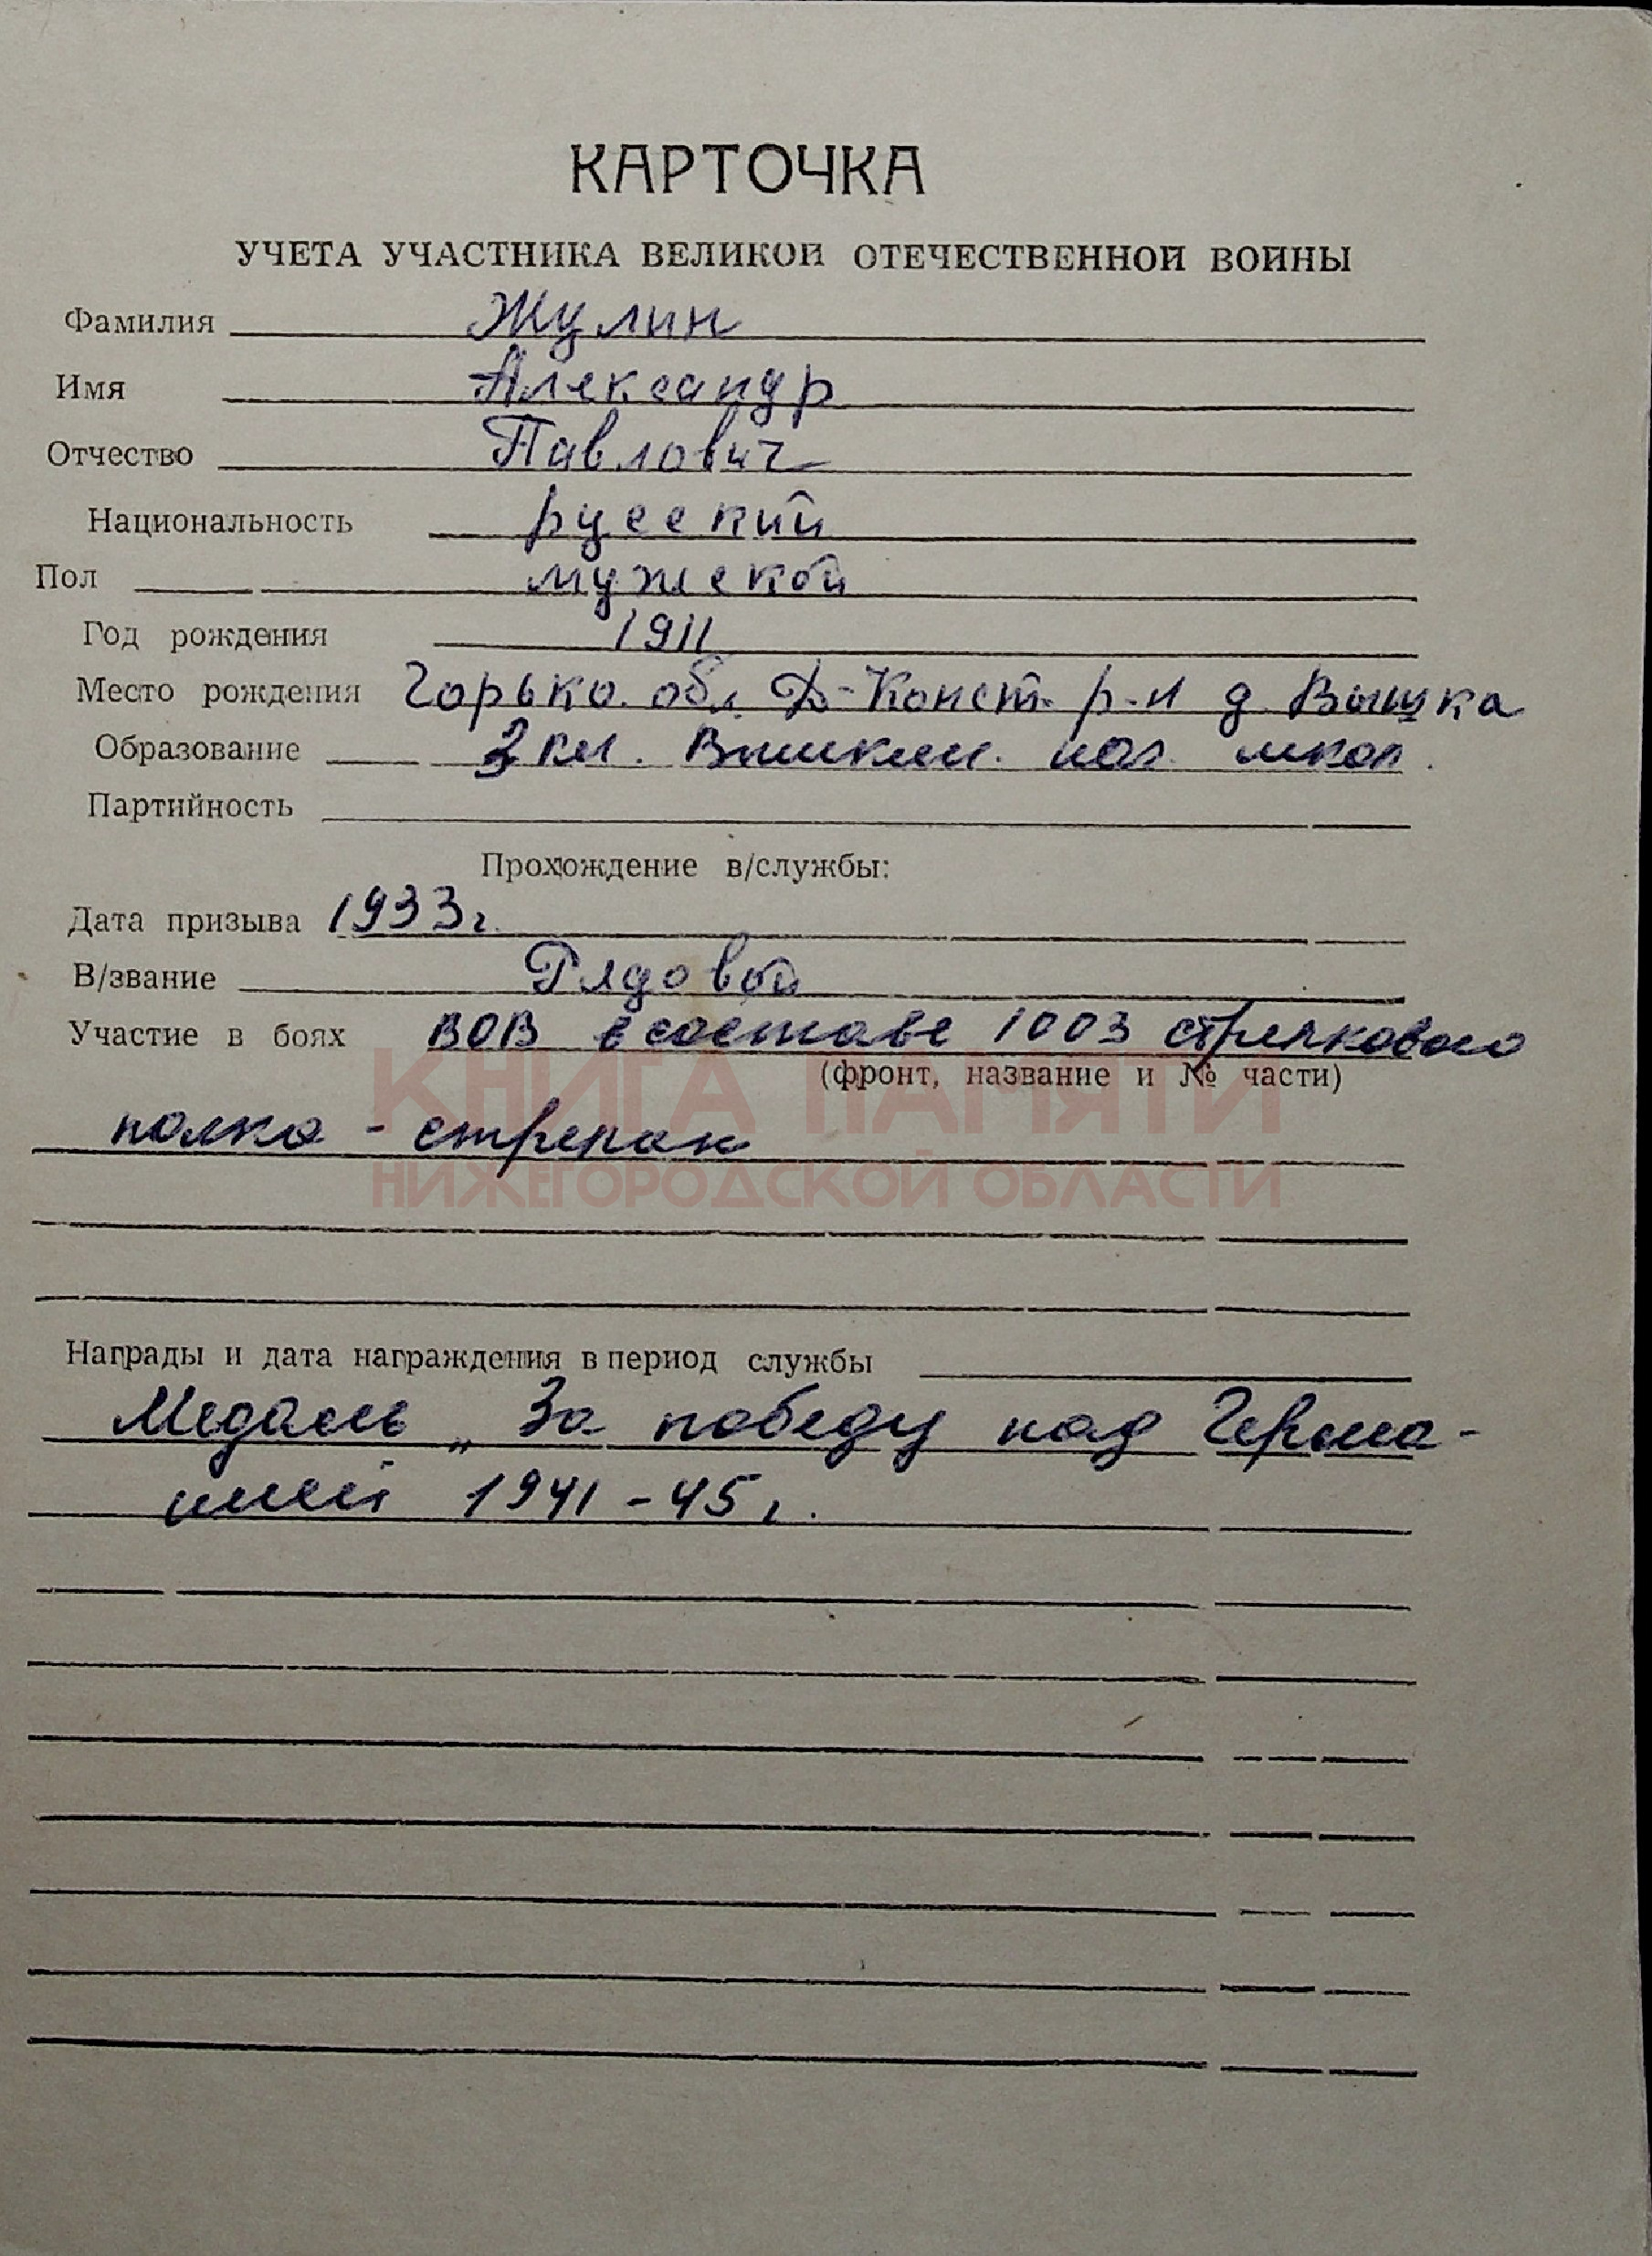 КАРТОЧКА
УЧЕТА УЧАСТНИКА ВЕЛИКОЙ ОТЕЧЕСТВЕННОЙ ВОЙНЫ
Фамилия Жулин
Имя Александр
Отчество Павлович
Национальность русский
Пол мужской
Год рождения 1911
Место рождения Горько. обл. Д-Конст. р-н д. Вышка
Образование 3 кл. нач. школ.
Партийность
Прохождение в/службы:
Дата призыва 1933г.
В/звание Рядовой
Участие в боях ВОВ в составе 1003 стрелкового
(фронт, название и № части)
КНИГА ПАМЯТИ
полка - стрелок
НИЖЕГОРОДСКОЙ ОБЛАСТИ
Награды и дата награждения в период службы
Медаль „За победу над Герма-
нией 1941-45г.